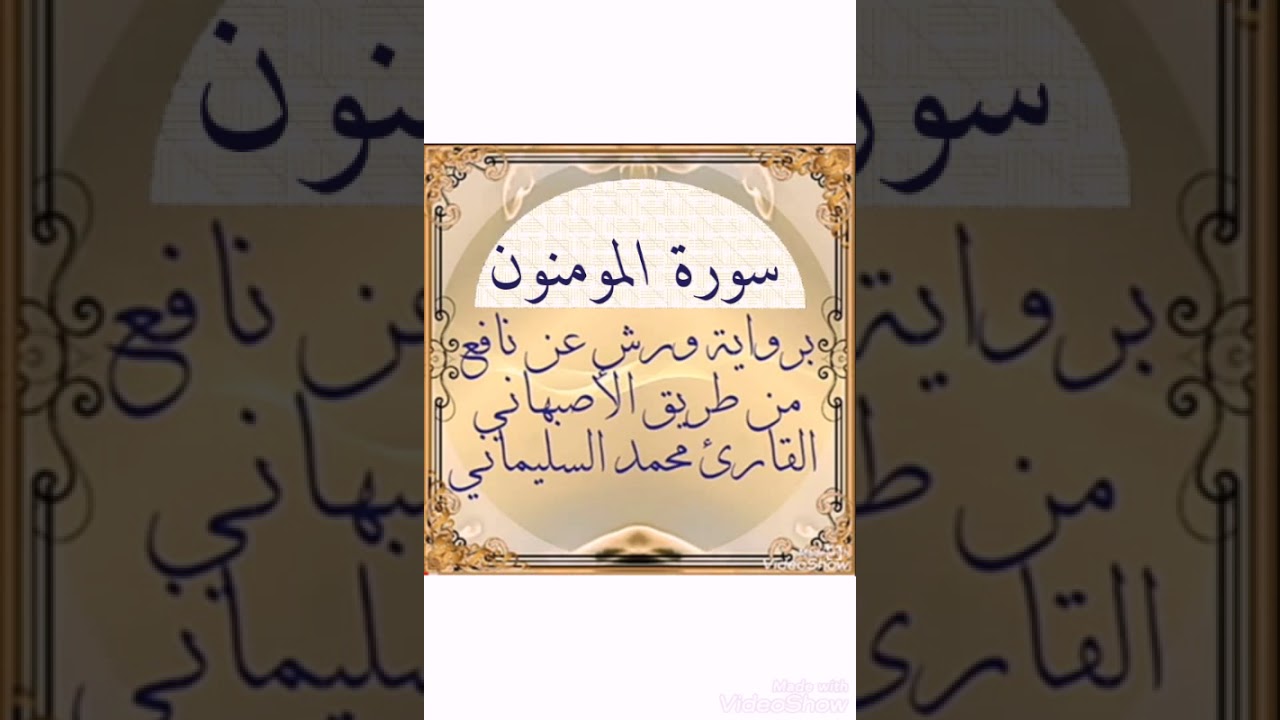 سورة المومنون
برواية ورش عن نافع
من طريق الأصبهاني
القارئ محمد السليماني
VideoShow
Made with
VideoShow